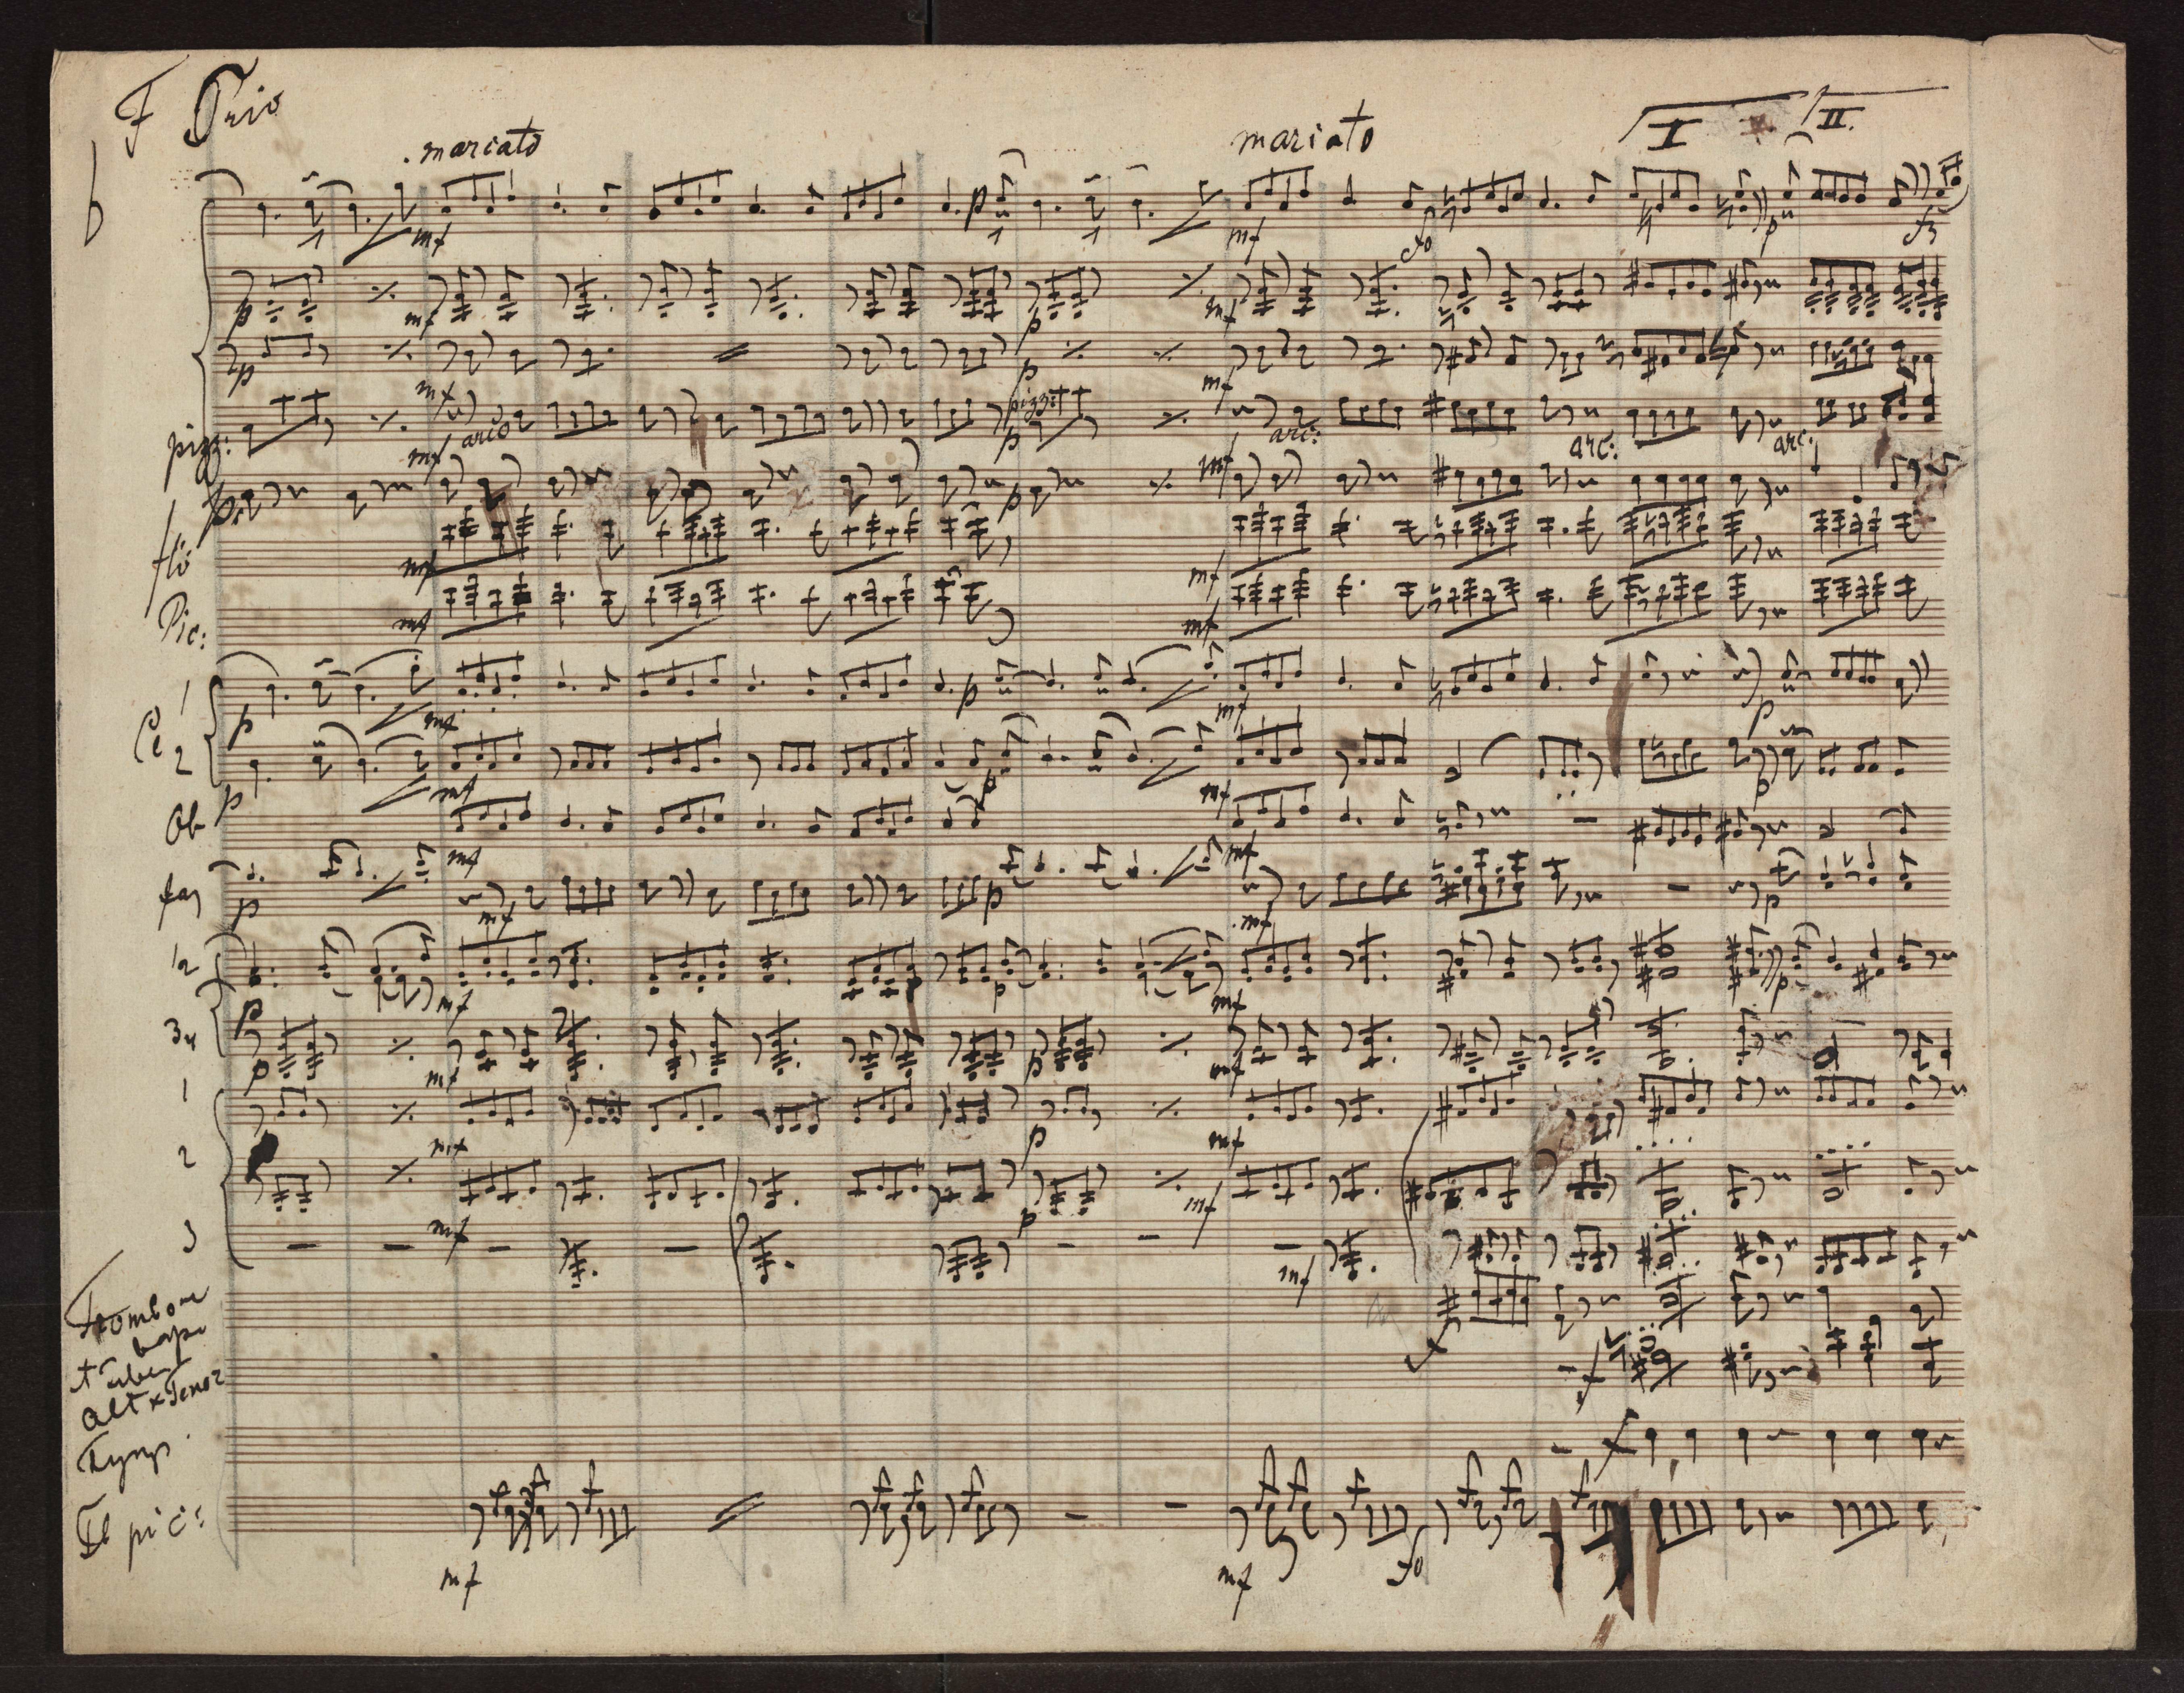 F Trio
marcato marcato I II.
mf p mf fo p fz
p mf p mf
p mf p mf
pizz: arco pizz: arc: arc: arc:
mf p mf
p p
flö mf mf
Pic: mf mf
1 p mf p mf p
Cl
2 p mf p mf p
Ob mf mf
fag p mf p mf p
12 p mf p mf p
34 p mf p mf
1 mf p mf
2 mf p mf
3 mf
Trombon
f
alt x Tenor f
Tymp. f
pic:
mf mf fo